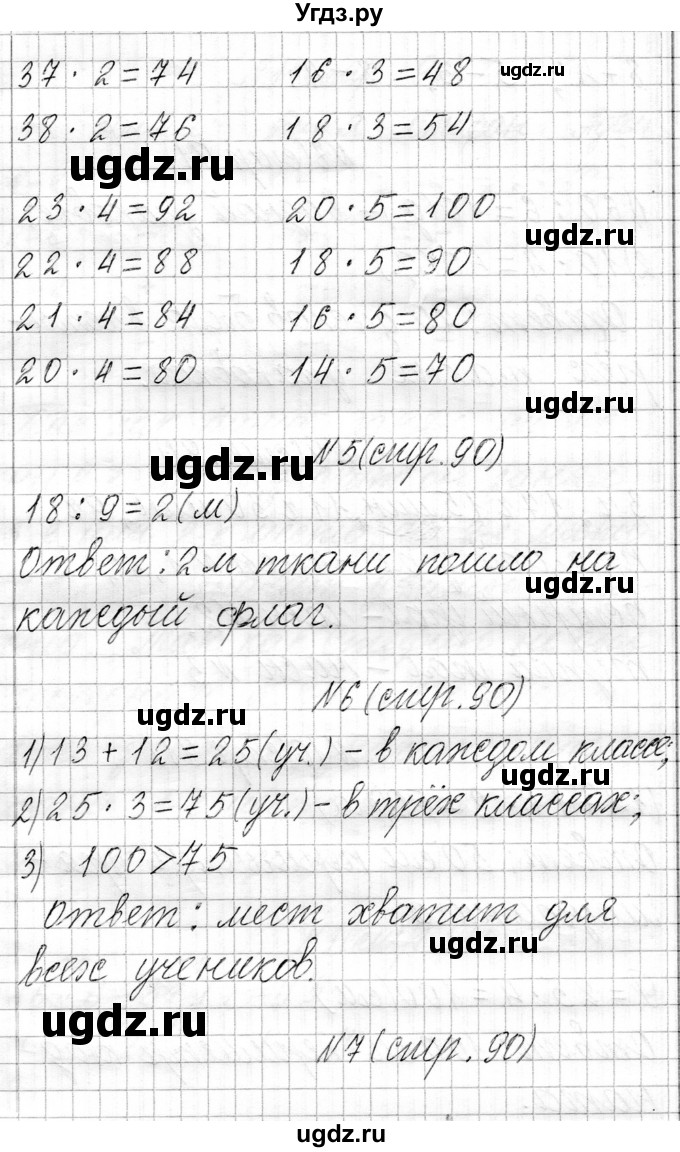 Угдз.ру
37 · 2 = 74 16 · 3 = 48 ugdz.ru
38 · 2 = 76 18 · 3 = 54
ugdz.ru
23 · 4 = 92 20 · 5 = 100
ugdz.ru
22 · 4 = 88 18 · 5 = 90
21 · 4 = 84 16 · 5 = 80
20 · 4 = 80 14 · 5 = 70
ugdz.ru
ugdz.ru №5 (стр. 90)
18 : 9 = 2 (м)
Ответ: 2 м ткани пошло на
ugdz.ru
каждый флаг.
№6 (стр. 90)
ugdz.ru
1) 13 + 12 = 25 (уч.) – в каждом классе;
ugdz.ru
2) 25 · 3 = 75 (уч.) – в трёх классах;
3) 100 > 75
Ответ: мест хватит для
ugdz.ru
всех учеников.
ugdz.ru
№7 (стр. 90)
ugdz.ru